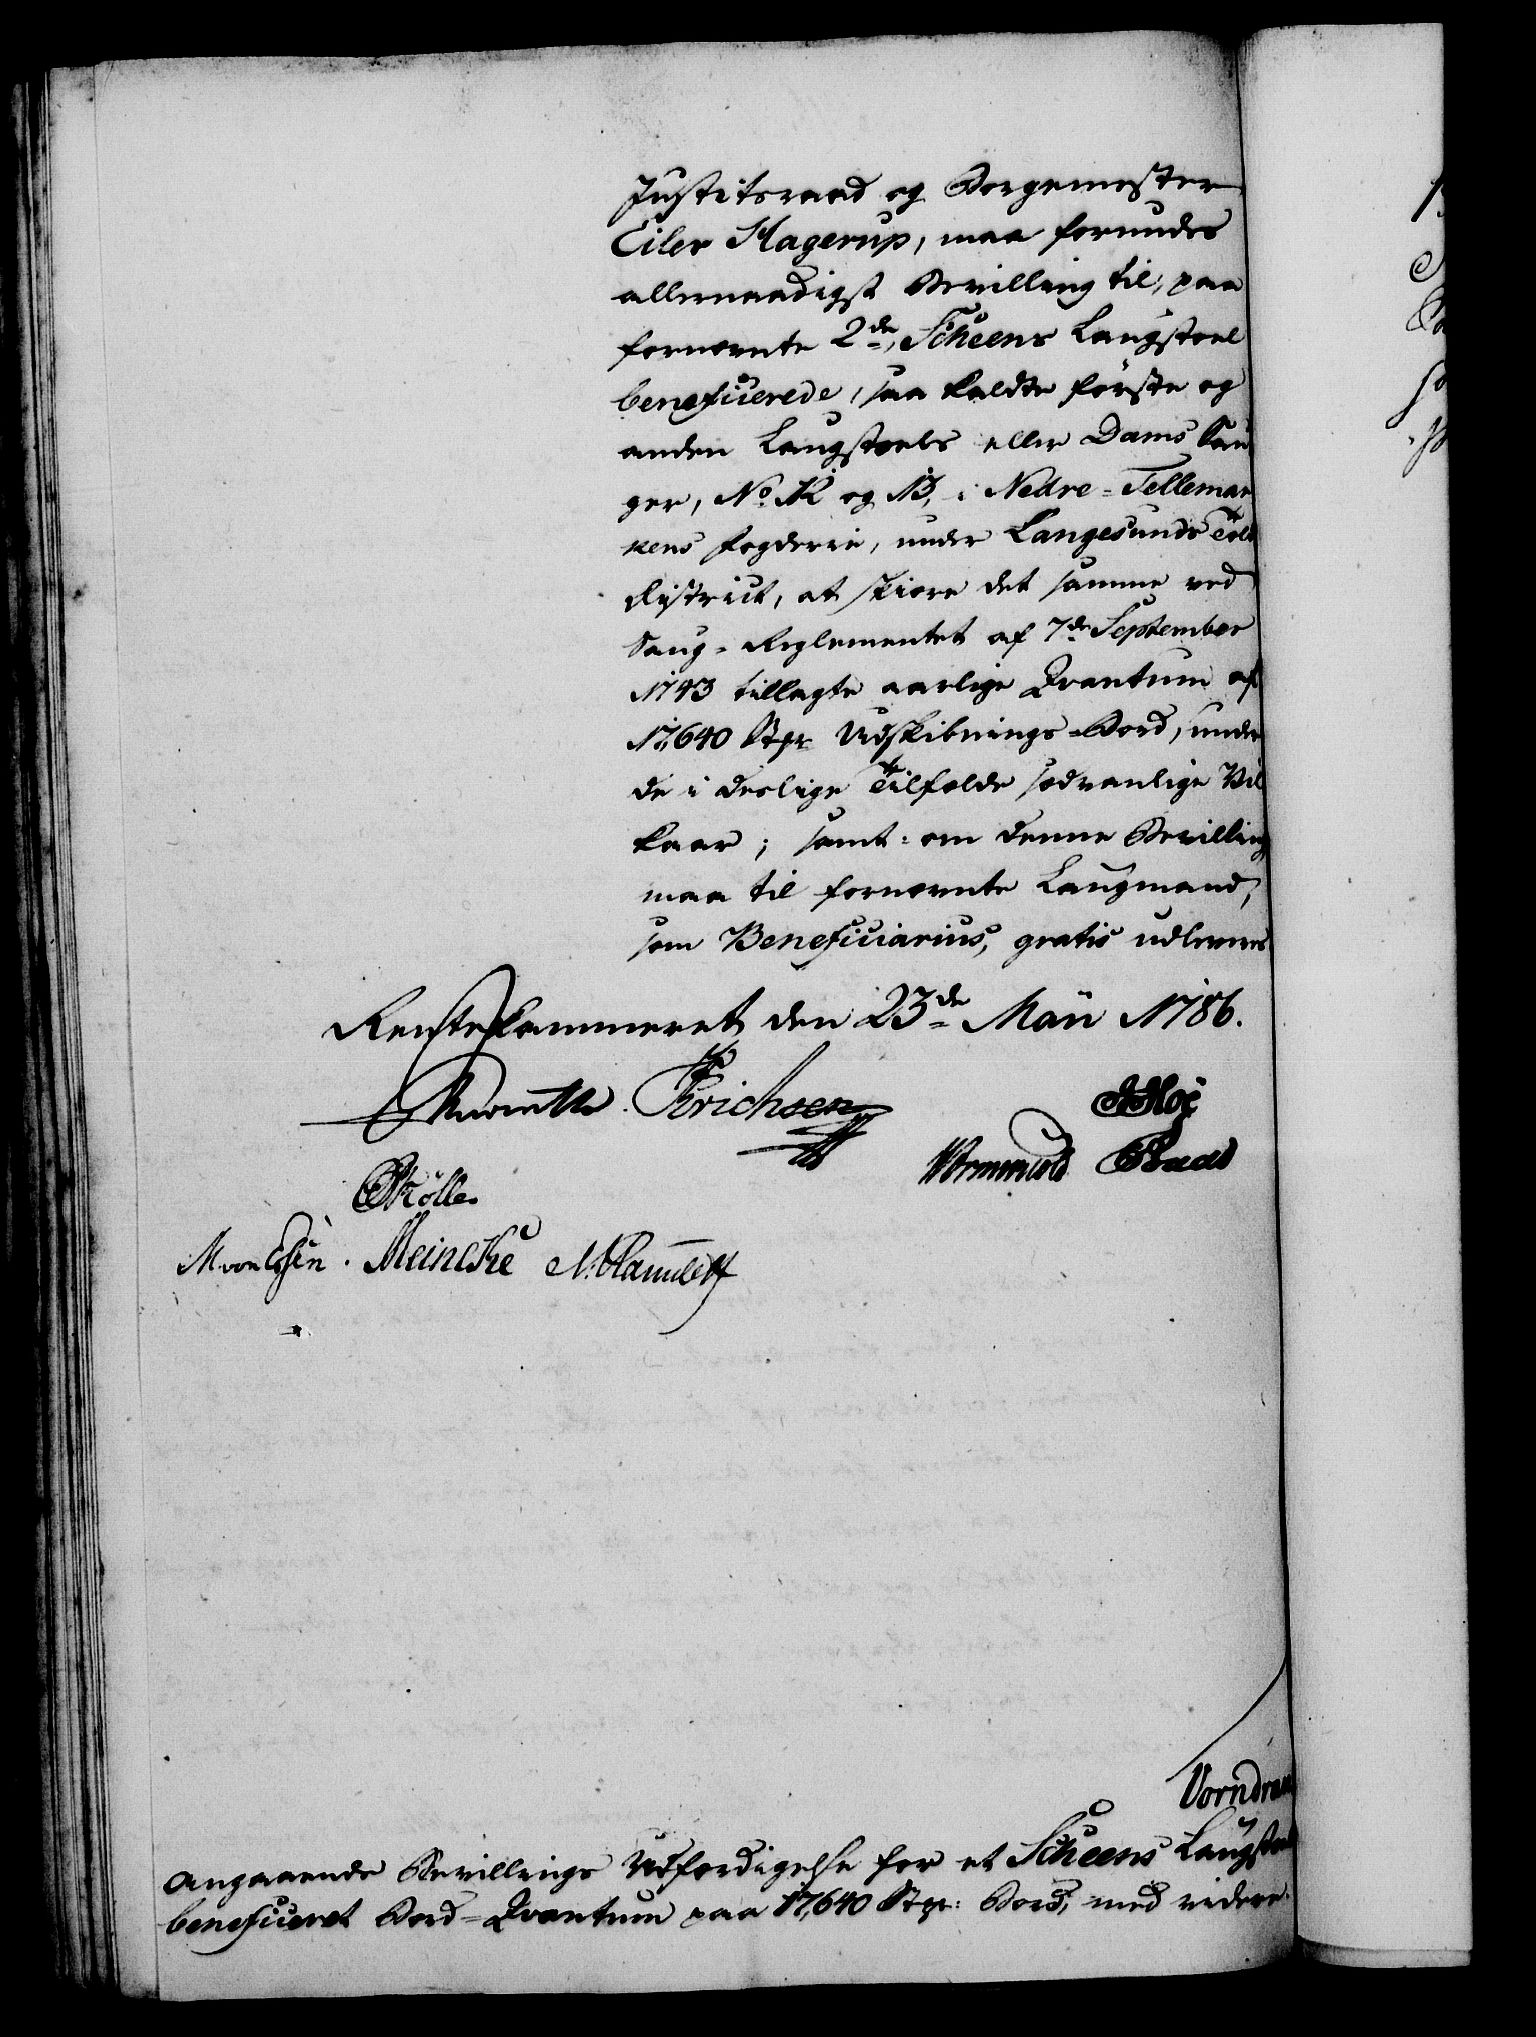 Justitsraad og Borgemester
Eiler Hagerup, maa forundes
allernaadigst Bevilling til, paa
fornævnte 2de, Scheens Laugstoel
beneficerede, saa kaldte förste og
anden Laugstoels eller Dams Sau
ger, No. 12 og 13, i Nedre-Tellemar
kens Fogderie, under Langesunds Told
District, at skiære det samme ved
Saug-Reglementet af 7de September
1743 tillagte aarlige Qvantum af
17,640 Stkr Udskibnings-Bord, under
de i deslige Tilfælde sædvanlige Vil
kaar; samt: om denne Bevilling
maa til fornævnte Laugmand,
som Beneficiarius, gratis udleveres
Rentekammeret den 23de Maii 1786.
Erichsen
Wormskiold
Möller
M von Essen. Meincke N. Hammeleff
Vorndran
Angaaende Bevillings Udfærdigelse for et Scheens Laugstoel
beneficeret Bord-Qvantum paa 17,640 Stkr: Bord; med videre.